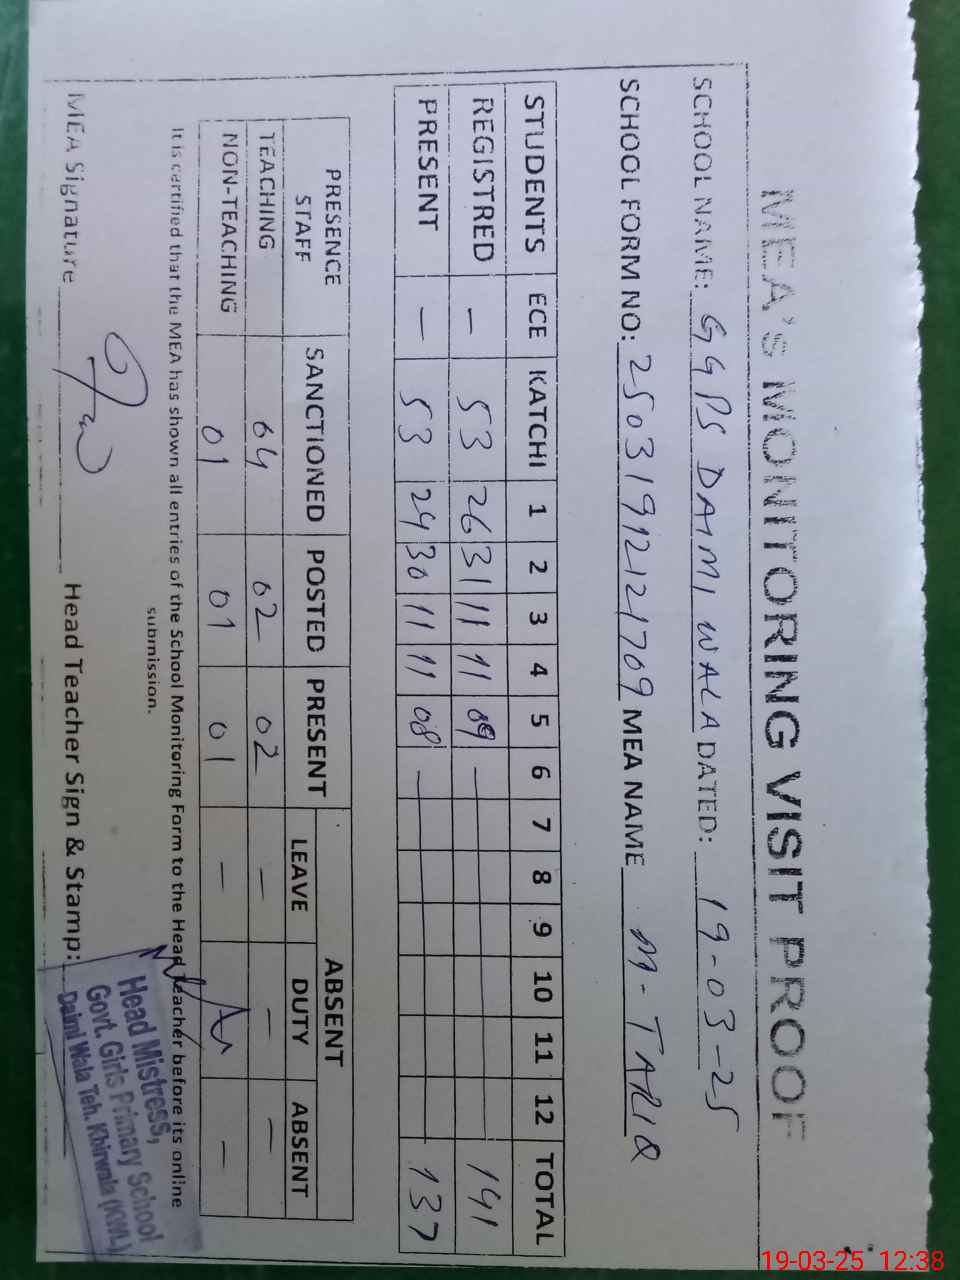 MEA'S MONITORING VISIT PROOF
SCHOOL NAME: GGPS DAIMI WALA DATED: 19-03-25
SCHOOL FORM NO: 25031912121709 MEA NAME M-TARIQ
STUDENTS ECE KATCHI 1 2 3 4 5 6 7 8 9 10 11 12 TOTAL
REGISTRED — 53 26 31 11 11 09 — 141
PRESENT — 53 24 30 11 11 08 — 137
PRESENCE STAFF SANCTIONED POSTED PRESENT ABSENT
LEAVE DUTY ABSENT
TEACHING 04 02 02 — — —
NON-TEACHING 01 01 01 — —
It is certified that the MEA has shown all entries of the School Monitoring Form to the Head Teacher before its online
submission.
MEA Signature Head Teacher Sign & Stamp:
Head Mistress,
Govt. Girls Primary School
Daimi Wala Teh. Khirwala (KWL)
19-03-25 12:38